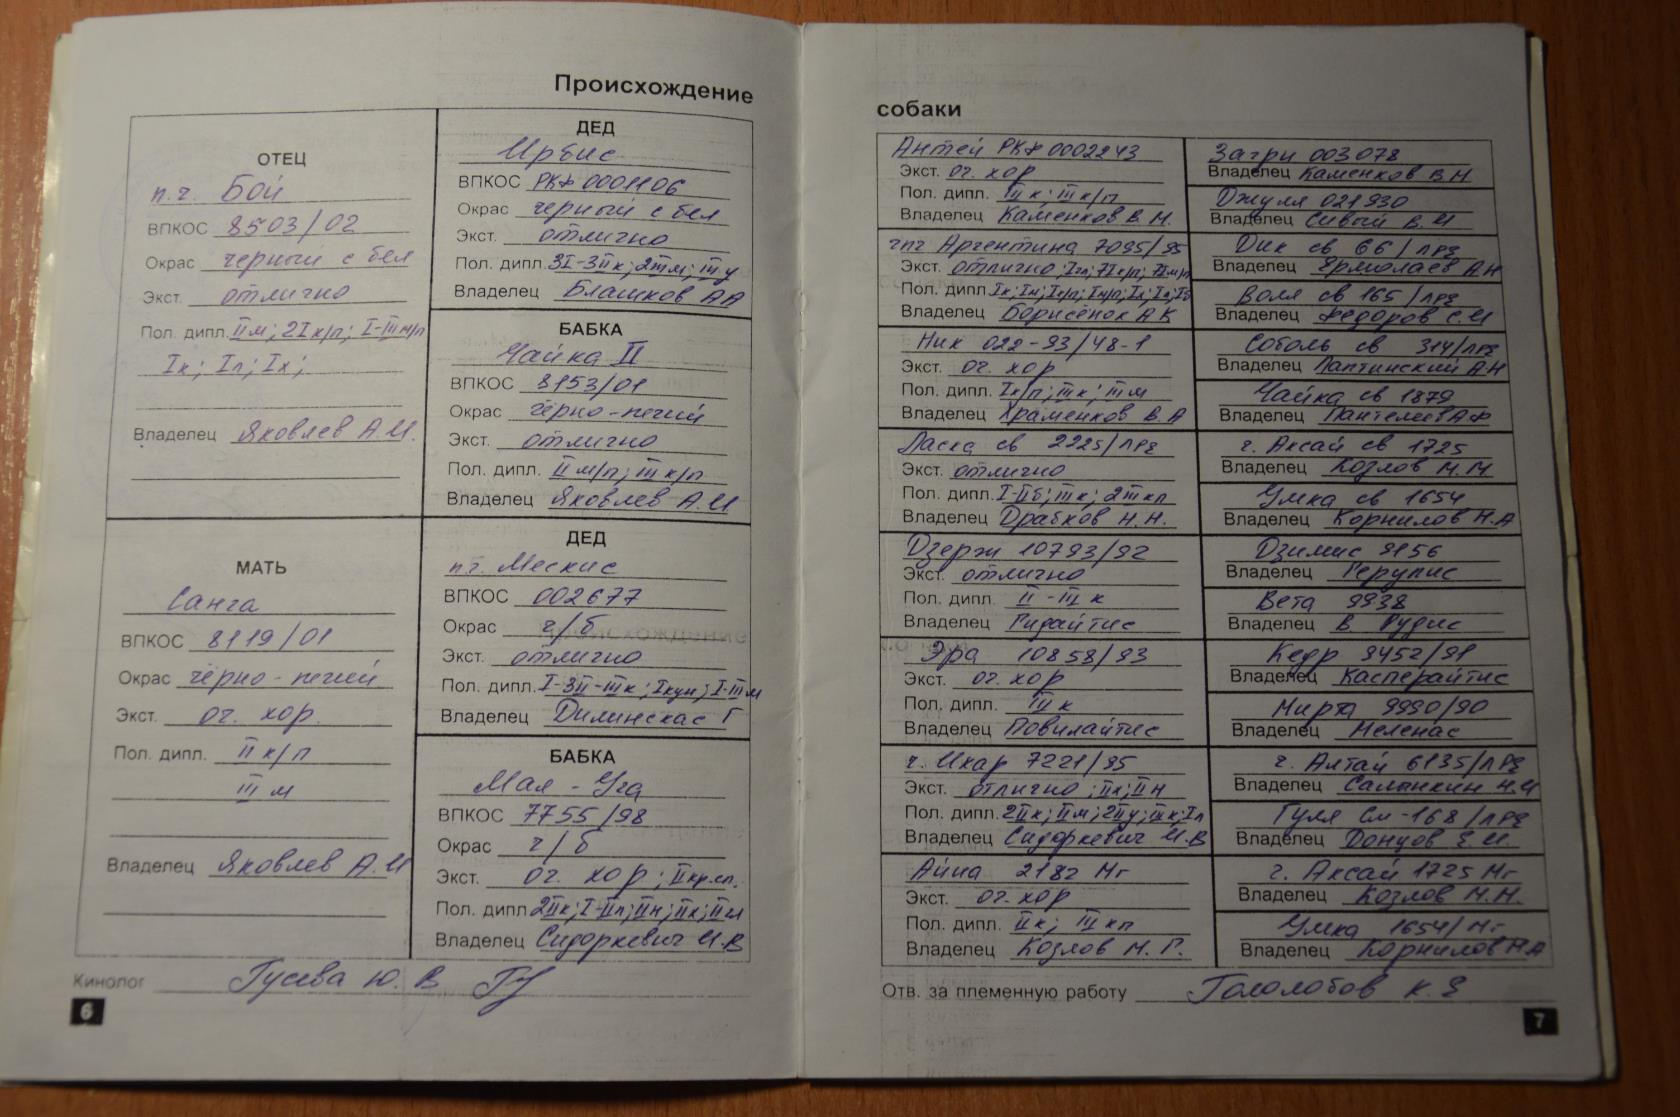 Происхождение
ОТЕЦ
п.ч. Бой
ВПКОС 8503/02
Окрас черный с бел
Экст. отлично
Пол. дипл. IIм; 2Iк/п; I-IIIм/п
Iк; Iл; Iх;
Владелец Яковлев А.И.
МАТЬ
Санга
ВПКОС 8119/01
Окрас чёрно-пегий
Экст. оч. хор.
Пол. дипл. IIк/п
IIIм
Владелец Яковлев А.И
ДЕД
Ирбис
ВПКОС РКФ 0001106
Окрас черный с бел
Экст. отлично
Пол. дипл. 3I-3IIк; 2IIIм; IIIу
Владелец Блашков АА
БАБКА
Чайка II
ВПКОС 8153/01
Окрас чёрно-пегий
Экст. отлично
Пол. дипл. IIм/п; IIIк/п
Владелец Яковлев А.И
ДЕД
пч. Мескис
ВПКОС 002677
Окрас ч/б
Экст. отлично
Пол. дипл. I-3II-IIIк; Iкун; I-IIIм
Владелец Дилинскас Г
БАБКА
Мая-Уга
ВПКОС 7755/98
Окрас ч/б
Экст. оч. хор; IIкр.сл.
Пол. дипл 2IIк; I-IIл; IIн; IIх; IIм
Владелец Сидоркевич И.В
Кинолог Гусева Ю.В
6
собаки
Антей РКФ 0002243
Экст. оч. хор
Пол. дипл. IIк; IIIк/п
Владелец Каменков В.Н.
чпч Аргентина 7095/95
Экст. отлично; Iл; 7Iк/п; 7Iм/п
Пол. дипл. Iк; Iм; Iк/п; Iм/п; Iх; Iл; Iб
Владелец Борисёнок АК
Ник 022-93/48-1
Экст. оч. хор
Пол. дипл. Iк/п; IIIк; IIIм
Владелец Храменков В.А
Ласка св 2225/лрч
Экст. отлично
Пол. дипл. I-IIб; IIIк; 2IIIкп
Владелец Драбков Н.Н.
Дзерж 10793/92
Экст. отлично
Пол. дипл. II-IIIк
Владелец Гидайтис
Эра 10858/93
Экст. оч. хор
Пол. дипл. IIIк
Владелец Повилайтис
ч. Икар 7221/95
Экст. отлично; IIх; IIн
Пол. дипл. 2IIк; IIм; 2IIу; IIIк; Iл
Владелец Сидоркевич И.В
Айна 2182 Мг
Экст. оч. хор
Пол. дипл. IIк; IIIкп
Владелец Козлов М.Г.
Загри 003078
Владелец Каменков В.Н
Джуля 021930
Владелец Сивый В.И
Дик св 66/лрч
Владелец Ермолаев АН
Воля св 165/лрч
Владелец Федоров С.И
Соболь св 314/лрч
Владелец Лаптинский А.Н
Чайка св 1879
Владелец Пантелеев А.Ф
ч. Аксай св 1725
Владелец Козлов М.М
Умка св 1654
Владелец Корнилов Н.А
Дзимис 9156
Владелец Герулис
Вета 9938
Владелец В. Рудис
Кедр 9452/91
Владелец Касперайтис
Мирта 9990/90
Владелец Меленас
ч. Алтай 6135/лрч
Владелец Саланкин Н.И
Гуля См-168/лрч
Владелец Донцов Е.И.
ч. Аксай 1725 Мг
Владелец Козлов М.М.
Умка 1654/Мг
Владелец Корнилов Н.А
Отв. за племенную работу Гололобов К.Е
7